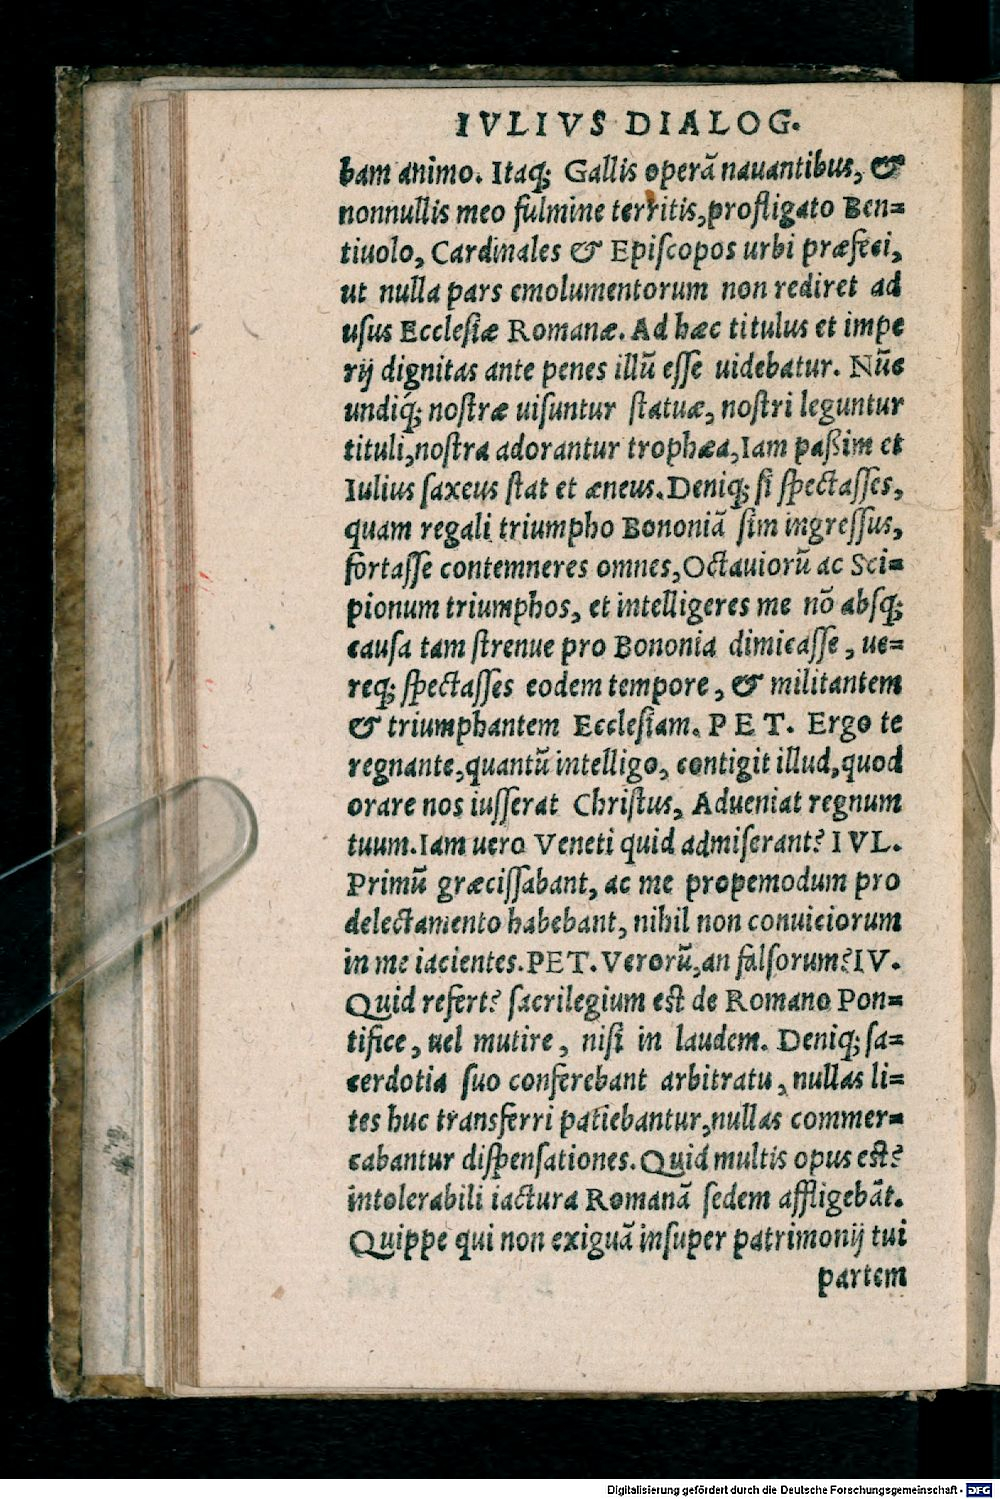 IVLIVS DIALOG.
bam animo. Itaq; Gallis operā nauantibus, &
nonnullis meo fulmine territis,profligato Ben=
tiuolo, Cardinales & Episcopos urbi præfeci,
ut nulla pars emolumentorum non rediret ad
usus Ecclesiæ Romanæ. Ad hæc titulus et impe
rij dignitas ante penes illū esse uidebatur. Nūc
undiq́; nostræ uisuntur statuæ, nostri leguntur
tituli,nostra adorantur trophæa,Iam paßim et
Iulius saxeus stat et æneus.Deniq; si spectasses,
quam regali triumpho Bononiā sim ingressus,
fortasse contemneres omnes,Octauiorū ac Sci=
pionum triumphos, et intelligeres me nō absq;
causa tam strenue pro Bononia dimicasse, ue=
req; spectasses eodem tempore, & militantem
& triumphantem Ecclesiam. PET. Ergo te
regnante,quantū intelligo, contigit illud,quod
orare nos iusserat Christus, Adueniat regnum
tuum.Iam uero Veneti quid admiserant? IVL.
Primū græcissabant, ac me propemodum pro
delectamento habebant, nihil non conuiciorum
in me iacientes.PET.Verorū,an falsorum?IV.
Quid refert? sacrilegium est de Romano Pon=
tifice, uel mutire, nisi in laudem. Deniq; sa=
cerdotia suo conferebant arbitratu, nullas li=
tes huc transferri patiebantur,nullas commer=
cabantur dispensationes.Quid multis opus est?
intolerabili iactura Romanā sedem affligebāt.
Quippe qui non exiguā insuper patrimonij tui
partem
Digitalisierung gefördert durch die Deutsche Forschungsgemeinschaft - DFG